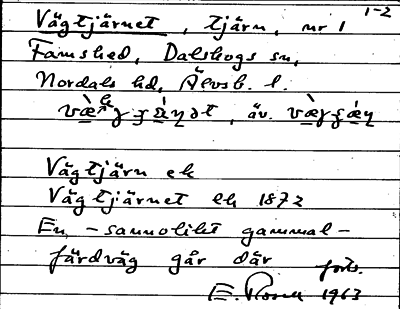 Vägtjärnet, tjärn, nr 1 1-2
Famshed, Dalskogs sn,
Nordals hd, Älvsb. l.
äv.
Vägtjärn ek
Vägtjärnet ek 1872
En, -sannolikt gammal-
färdväg går där
forts.
E. Rosell 1963